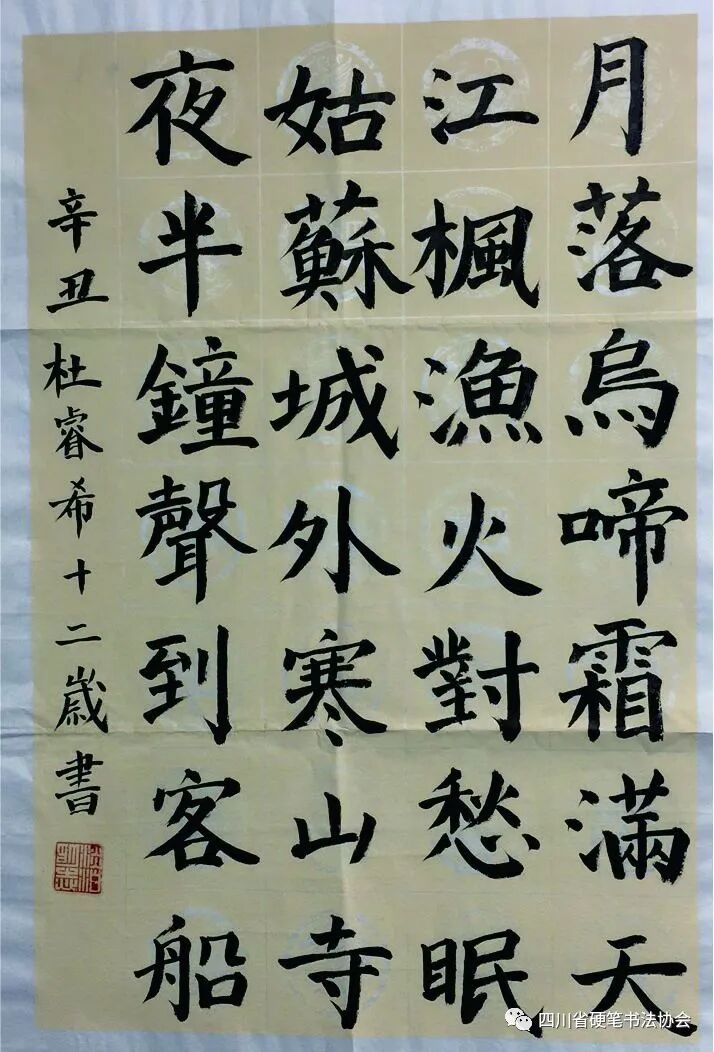 月落烏啼霜滿天
江楓漁火對愁眠
姑蘇城外寒山寺
夜半鐘聲到客船
辛丑杜睿希十二歲書
四川省硬笔书法协会